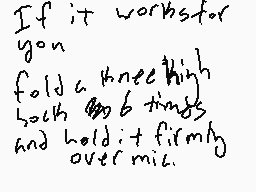 If it works for
you
fold a knee high
sock 6 times
and hold it firmly
over mic.